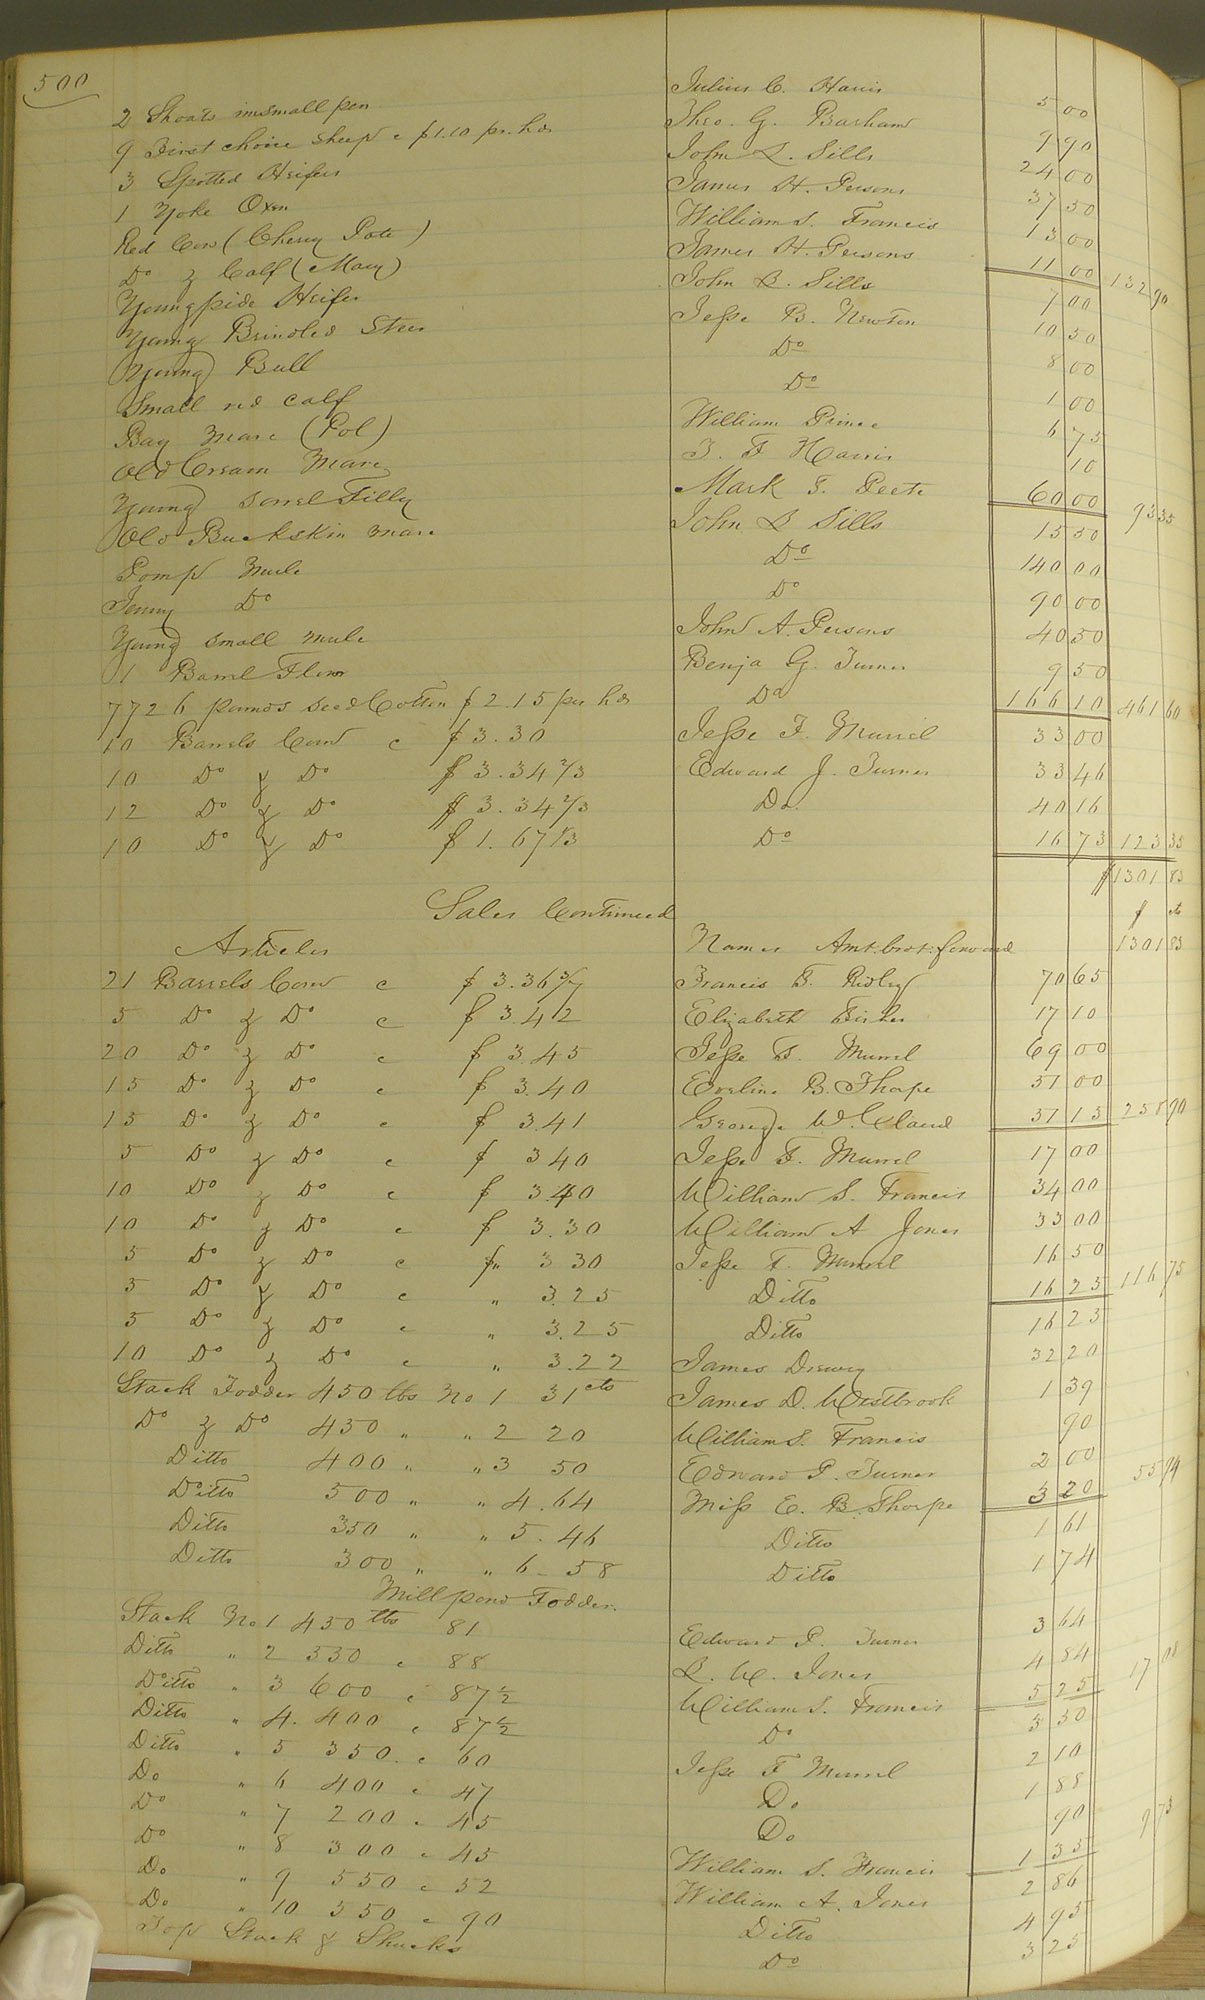 500
Julius C. Harris
2 Shoats in small pen Theo. G. Barham 5 00
9 First choice sheep @ $1.10 pr. hd John L. Sills 9 90
3 Spotted Heifers James H. Persons 24 00
1 Yoke Oxen William S. Francis 37 50
Red Cow (Cherry Pote) James H. Persons 13 00
Do & Calf (Mary) John B. Sills 11 00 132 90
Young pide Heifer Jesse B. Newton 7 00
Young Brindled Steer Do 10 50
Young Bull Do 8 00
Small red calf William Prince 1 00
Bay Mare (Pol) T. F. Harris 6 75
Old Cream Mare Mark T. Peete 10
Young Sorrel Filly John B Sills 60 00 93 35
Old Buckskin mare Do 15 50
Pomp Mule Do 140 00
Jenny Do John A. Persons 90 00
Young small mule Benja G. Turner 40 50
1 Barrel Flour Do 9 50
7726 pounds seed Cotton $2.15 per hd Jesse F. Murrel 166 10 461 60
10 Barrels Corn @ $3.30 Edward J. Turner 33 00
10 Do & Do $3.34 2/3 Do 33 46
12 Do & Do $3.34 2/3 Do 40 16
10 Do & Do $1.67 1/3 16 73 123 35
$1301 83
Sales Continued $ cts
Articles Names Amt. brot. forward 1301 83
21 Barrels Corn @ $3.36 3/7 Francis T. Ridley 70 65
5 Do & Do @ $3.42 Elizabeth Fisher 17 10
20 Do & Do @ $3.45 Jesse F. Murrel 69 00
15 Do & Do @ $3.40 Eveline B. Thorpe 51 00
15 Do & Do @ $3.41 George W. Claud 51 15 258 90
5 Do & Do @ $3 40 Jesse F. Murrel 17 00
10 Do & Do @ $3 40 William S. Francis 34 00
10 Do & Do @ $3.30 William A Jones 33 00
5 Do & Do @ $" 3 30 Jesse F. Murrel 16 50
5 Do & Do @ " 3.25 Ditto 16 25 116 75
5 Do & Do @ " 3.25 Ditto 16 25
10 Do & Do @ " 3.22 James Drewry 32 20
Stack Fodder 450 lbs No 1 31 cts James D. Westbrook 1 39
Do & Do 450 " " 2 20 William S. Francis 90
Ditto 400 " " 3 50 Edward P. Turner 2 00
Ditto 500 " " 4. 64 Miss E. B. Thorpe 3 20 55 94
Ditto 350 " " 5. 46 Ditto 1 61
Ditto 300 " " 6 - 58 Ditto 1 74
Mill pond Fodder.
Stack No 1 450 lbs 81 Edward P. Turner 3 64
Ditto " 2 550 @ 88 B. W. Jones 4 84
Ditto " 3 600 @ 87 1/2 William S. Francis 5 25 17 08
Ditto " 4. 400 @ 87 1/2 Do 3 50
Ditto " 5 350 @ 60 Jesse F Murrel 2 10
Do " 6 400 @ 47 Do 1 88
Do " 7 200 @ 45 Do 90
Do " 8 300 @ 45 William S. Francis 1 35 9 73
Do " 9 550 @ 52 William A. Jones 2 86
Do " 10 550 @ 90 Ditto 4 95
Top Stack & Shucks Do 3 25